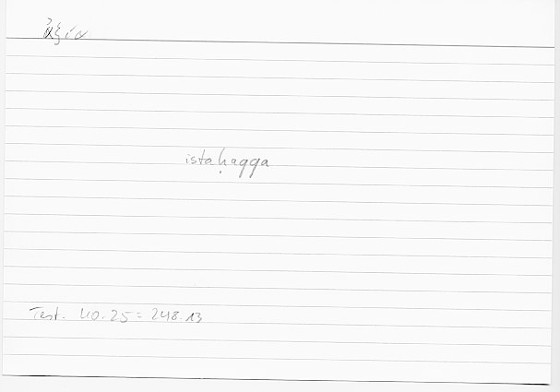 istaḥaqqa
Test. 40.25 = 248.13